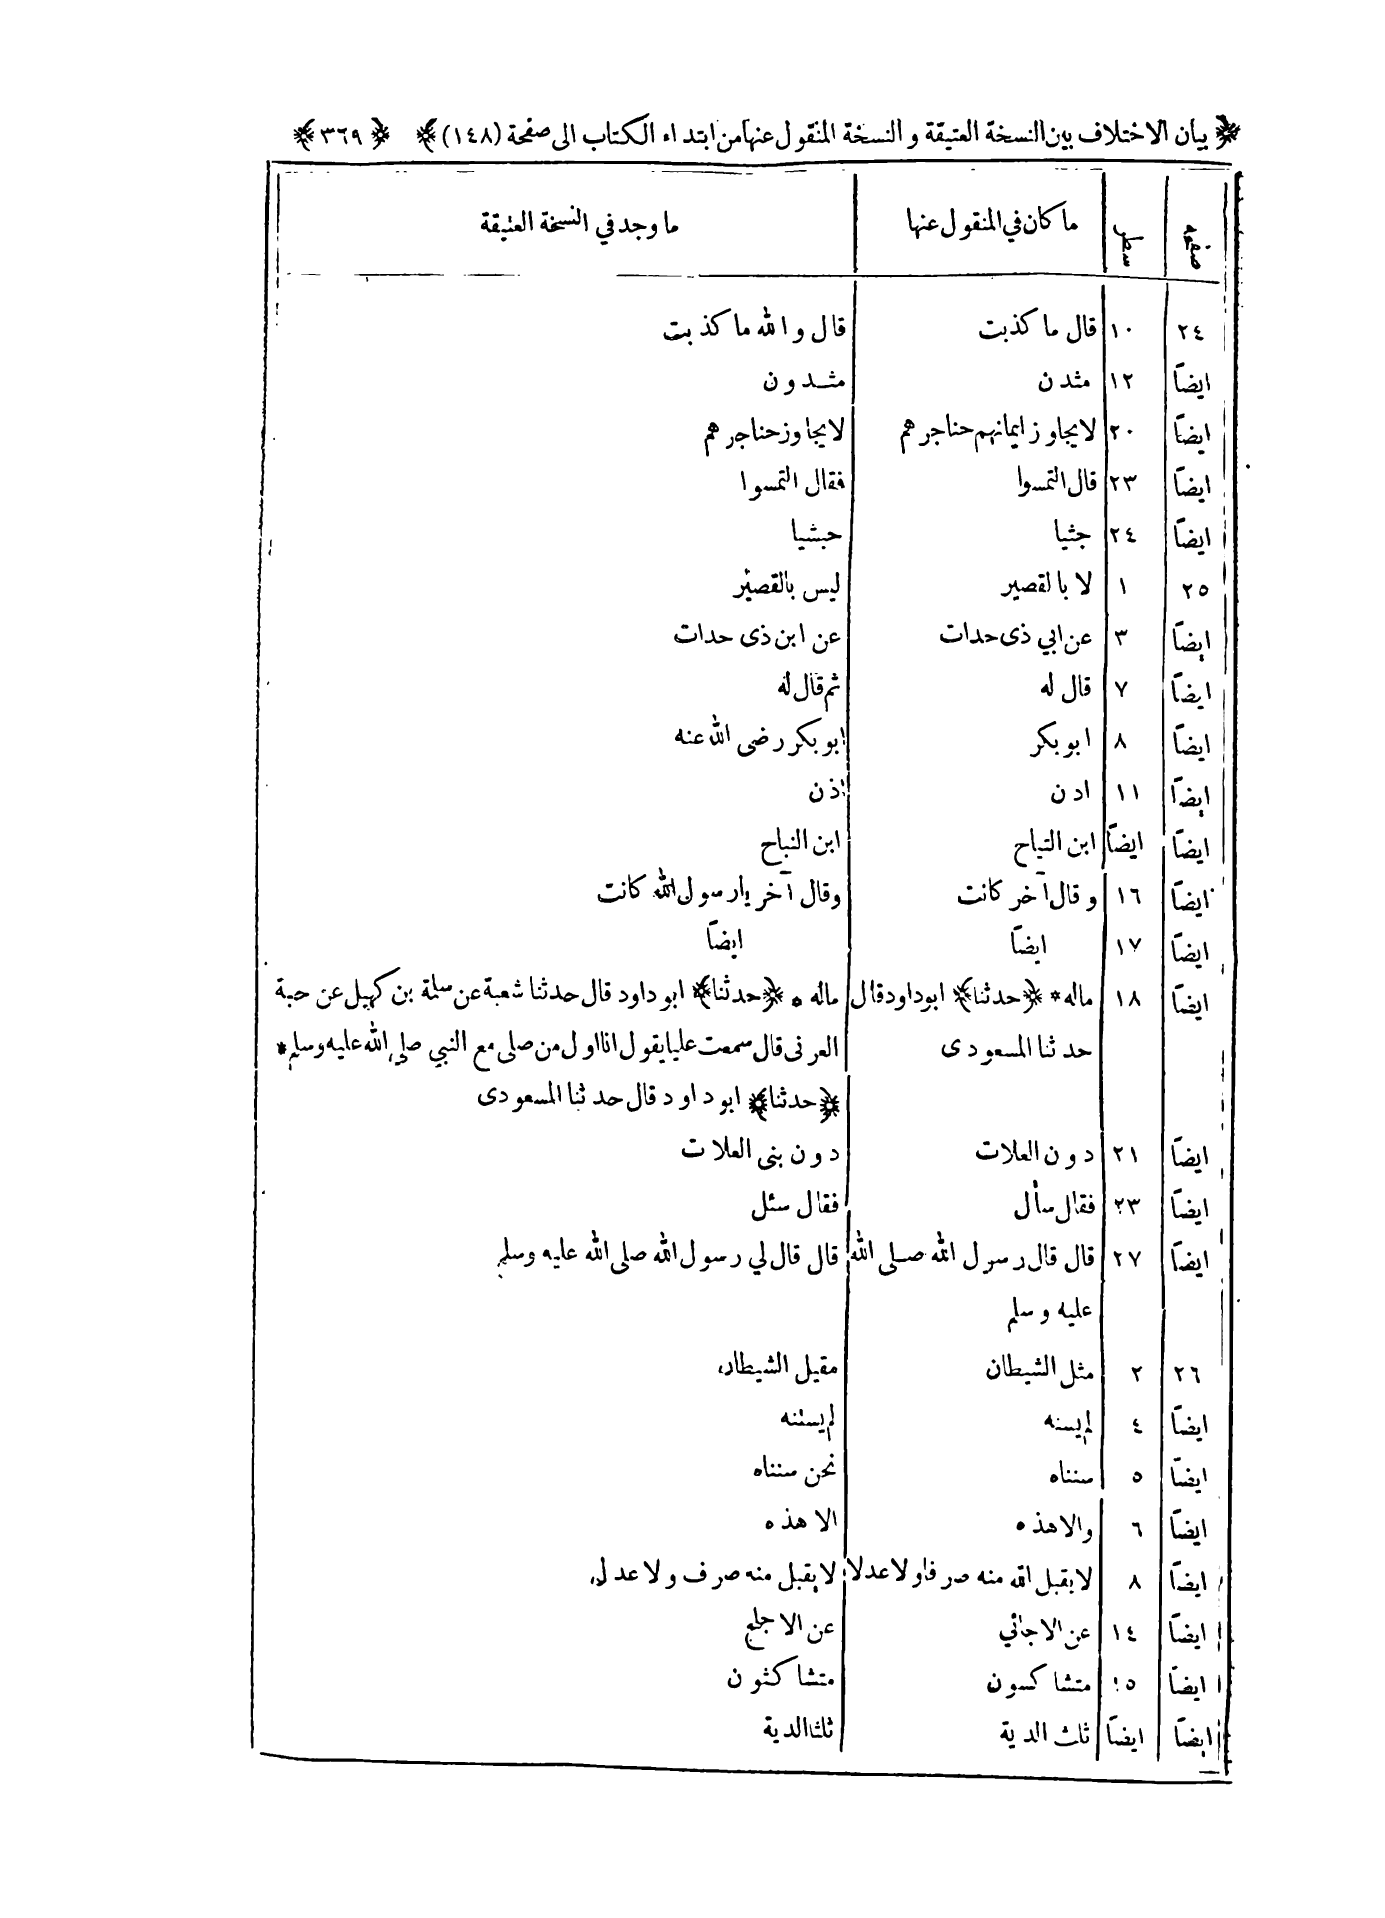 ﴿ بيان الاختلاف بين النسخة العتيقة و النسخة المنقول عنها من ابتداء الكتاب الى صفحة (١٤٨) ﴾ ﴿ ٣٦٩ ﴾
صفحه سطر ما كان في المنقول عنها ما وجد في النسخة العتيقة
٢٤ ١٠ قال ما كذبت قال والله ما كذبت
ايضاً ١٢ مثدن مثدون
ايضاً ٢٠ لا يجاوز ايمانهم حناجرهم لا يجاوز حناجرهم
ايضاً ٢٣ قال التمسوا فقال التمسوا
ايضاً ٢٤ جثيا حبشيا
٢٥ ١ لا بالقصير ليس بالقصير
ايضاً ٣ عن ابي ذى حدات عن ابن ذى حدات
ايضاً ٧ قال له ثم قال له
ايضاً ٨ ابو بكر ابو بكر رضى الله عنه
ايضاً ١١ ادن اذن
ايضاً ايضاً ابن التياح ابن النباح
ايضاً ١٦ وقال آخر كانت وقال آخر يا رسول الله كانت
ايضاً ١٧ ايضاً ايضاً
ايضاً ١٨ ماله * ﴿حدثنا﴾ ابو داود قال ماله * ﴿حدثنا﴾ ابو داود قال حدثنا شعبة عن سلمة بن كهيل عن حبة
حدثنا المسعودى العرنى قال سمعت عليا يقول انا اول من صلى مع النبي صلى الله عليه وسلم *
﴿حدثنا﴾ ابو داود قال حدثنا المسعودى
ايضاً ٢١ دون العلات دون بنى العلات
ايضاً ٢٣ فقال سأل فقال سئل
ايضاً ٢٧ قال قال رسول الله صلى الله قال قال لي رسول الله صلى الله عليه وسلم
عليه وسلم
٢٦ ٢ مثل الشيطان مقيل الشيطان
ايضاً ٤ لم يسنه لم يستنه
ايضاً ٥ سنناه نحن سنناه
ايضاً ٦ والا هذه الا هذه
ايضاً ٨ لا يقبل الله منه صرفا ولا عدلا لا يقبل منه صرف ولا عدل
ايضاً ١٤ عن الاجائي عن الاجلح
ايضاً ١٥ متشاكسون متشاكثون
ايضاً ايضاً ثلث الدية ثلثا الدية